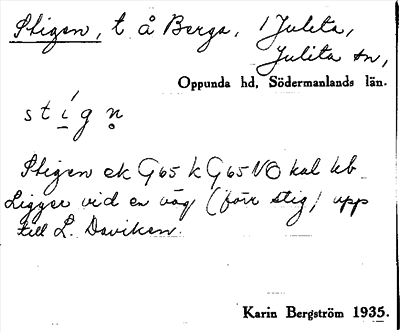 Stigen, t å Berga, i Julita,
Julita sn,
Oppunda hd, Södermanlands län.
stígn̥
Stigen ek G65 k G65 NO kal kb
Ligger vid en väg (förr stig) upp
till L. Daviken.
Karin Bergström 1935.